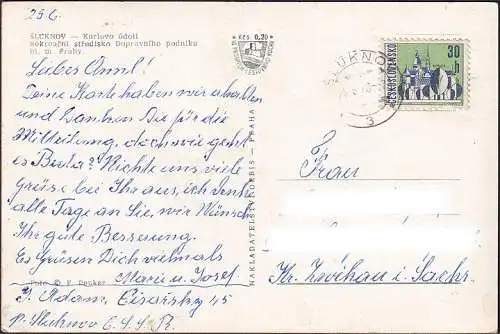 25 6.
ŠLUKNOV — Karlovo údolí
Rekreační středisko Dopravního podniku
hl. m. Prahy.
Kčs 0,20
Lieber Anni!
Deine Karte haben wir erhalten
und danken Dir für die
Mitteilung, doch wie geht
es Berta? Richte uns viele
Grüse bei Ihr aus, ich denke
alle Tage an Sie, wir Wünschen
Ihr gute Besserung.
Es Grüsen Dich vielmals
Marie u. Josef
Foto © F. Douker
J. Adam, Císařský 45
p. Šluknov Č.S.S.R.
NAKLADATELSTVÍ ORBIS - PRAHA
ŠLUKNOV
3
30 h
ČESKOSLOVENSKO
Frau
Kr. Zwickau i. Sachs.